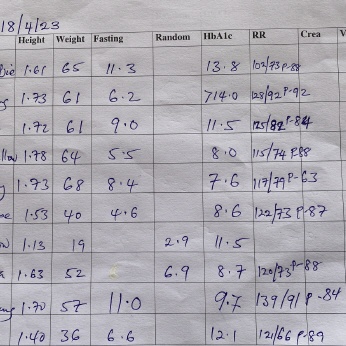 18/4/23
Height Weight Fasting Random HbA1c RR Crea V
1.61 65 11.3 13.8 102/73 P-88
1.73 61 6.2 >14.0 128/92 P-92
1.72 61 9.0 11.5 125/82 P-84
1.78 64 5.5 8.0 115/74 P-88
1.73 68 8.4 7.6 117/79 P-63
1.53 40 4.6 8.6 122/73 P-87
1.13 19 2.9 11.5
1.63 52 6.9 8.7 120/73 P-88
1.70 57 11.0 9.7 139/91 P-84
1.40 36 6.6 12.1 121/66 P-89